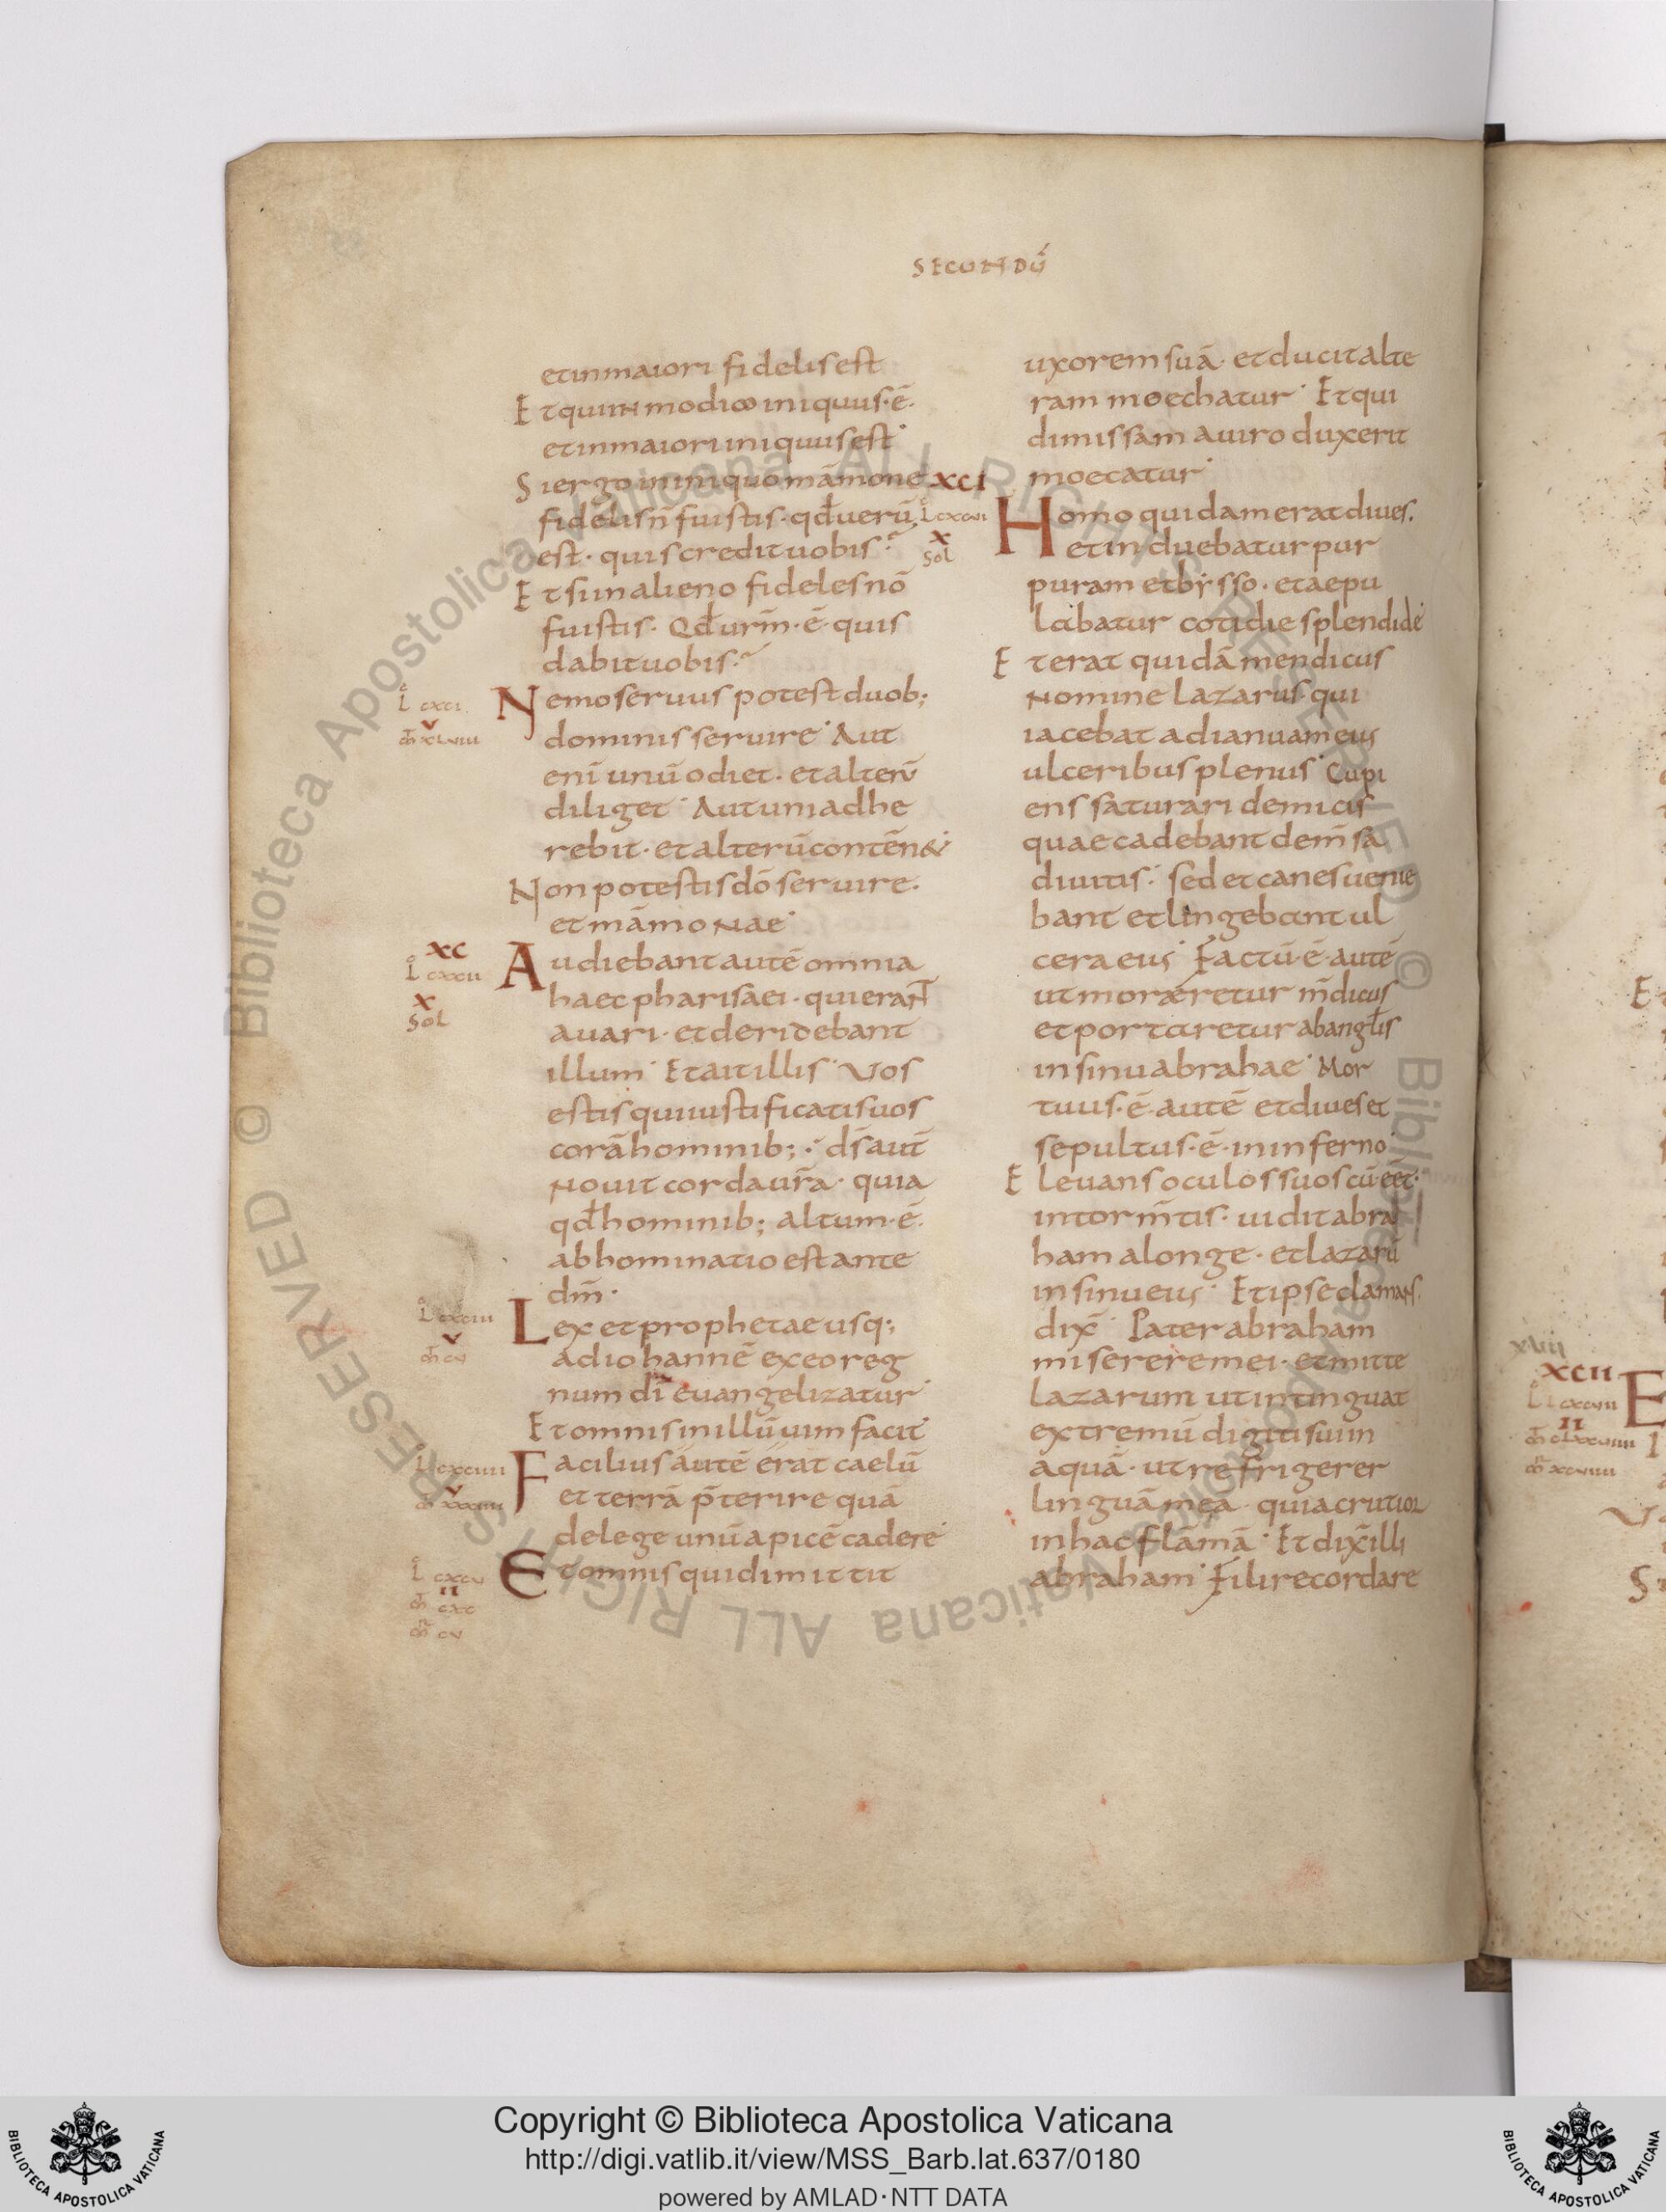 SECUNDŪ
et in maiori fidelis est
Et qui in modico iniquus·ē·
et in maiori iniquus est
Si ergo in iniquo māmone
fidelis n̄ fuistis· qđ uerū
est· quis credit uobis
Et si in alieno fideles nō
fuistis· Qđ urm̄·ē· quis
dabit uobis
L cxci
v
m̄ xlviii
Nemo seruus potest duob;
dominis seruire Aut
enī unū odiet· et alterū
diliget Aut uni adhe
rebit· et alterū contēn&
Non potestis dō seruire·
et māmonae
xc
L cxcii
x
sol
Audiebant autē omnia
haec pharisaei· qui erant
auari· et deridebant
illum Et ait illis Vos
estis qui iustificatis uos
corā hominib; · ds̄ aut̄
nouit corda ur̄a· quia
qđ hominib; altum·ē·
abhominatio est ante
dm̄·
L cxciii
v
m̄ cv
Lex et prophetae usq;
ad iohannē ex eo reg
num dī euangelizatur
Et omnis in illū uim facit
L cxciiii
v
Facilius autē erat caelū
et terrā p̄terire quā
de lege unū apicē cadere
L cxcv
ii
m̄ cxc
m̄ cv
Et omnis qui dimittit
uxorem suā· et ducit alte
ram moechatur Et qui
dimissam a uiro duxerit
moecatur
xci
L cxcvi
x
sol
Homo quidam erat diues.
et induebatur pur
puram et bysso· et aepu
labatur cotidie splendide
Et erat quidā mendicus
nomine lazarus qui
iacebat ad ianuam eius
ulceribus plenus Cupi
ens saturari de micis
quae cadebant de m̄sa
diuitis sed et canes uenie
bant et lingebant ul
cera eius Factū·ē·autē
ut moreretur m̄dicus
et portaretur ab angłis
in sinu abrahae Mor
tuus·ē·autē et diues et
sepultus·ē·in inferno
Eleuans oculos suos cū eēt·
in torm̄tis· uidit abra
ham a longe· et lazarū
in sinu eius Et ipse clamans
dix̄ Pater abraham
miserere mei· et mitte
lazarum ut intinguat
extremū digiti sui in
aquā· ut refrigerer
linguā meā quia crucior
in hac flāmā Et dix̄ illi
abraham Fili recordare
xcii
L cxcvii
ii
Copyright © Biblioteca Apostolica Vaticana
http://digi.vatlib.it/view/MSS_Barb.lat.637/0180
powered by AMLAD·NTT DATA